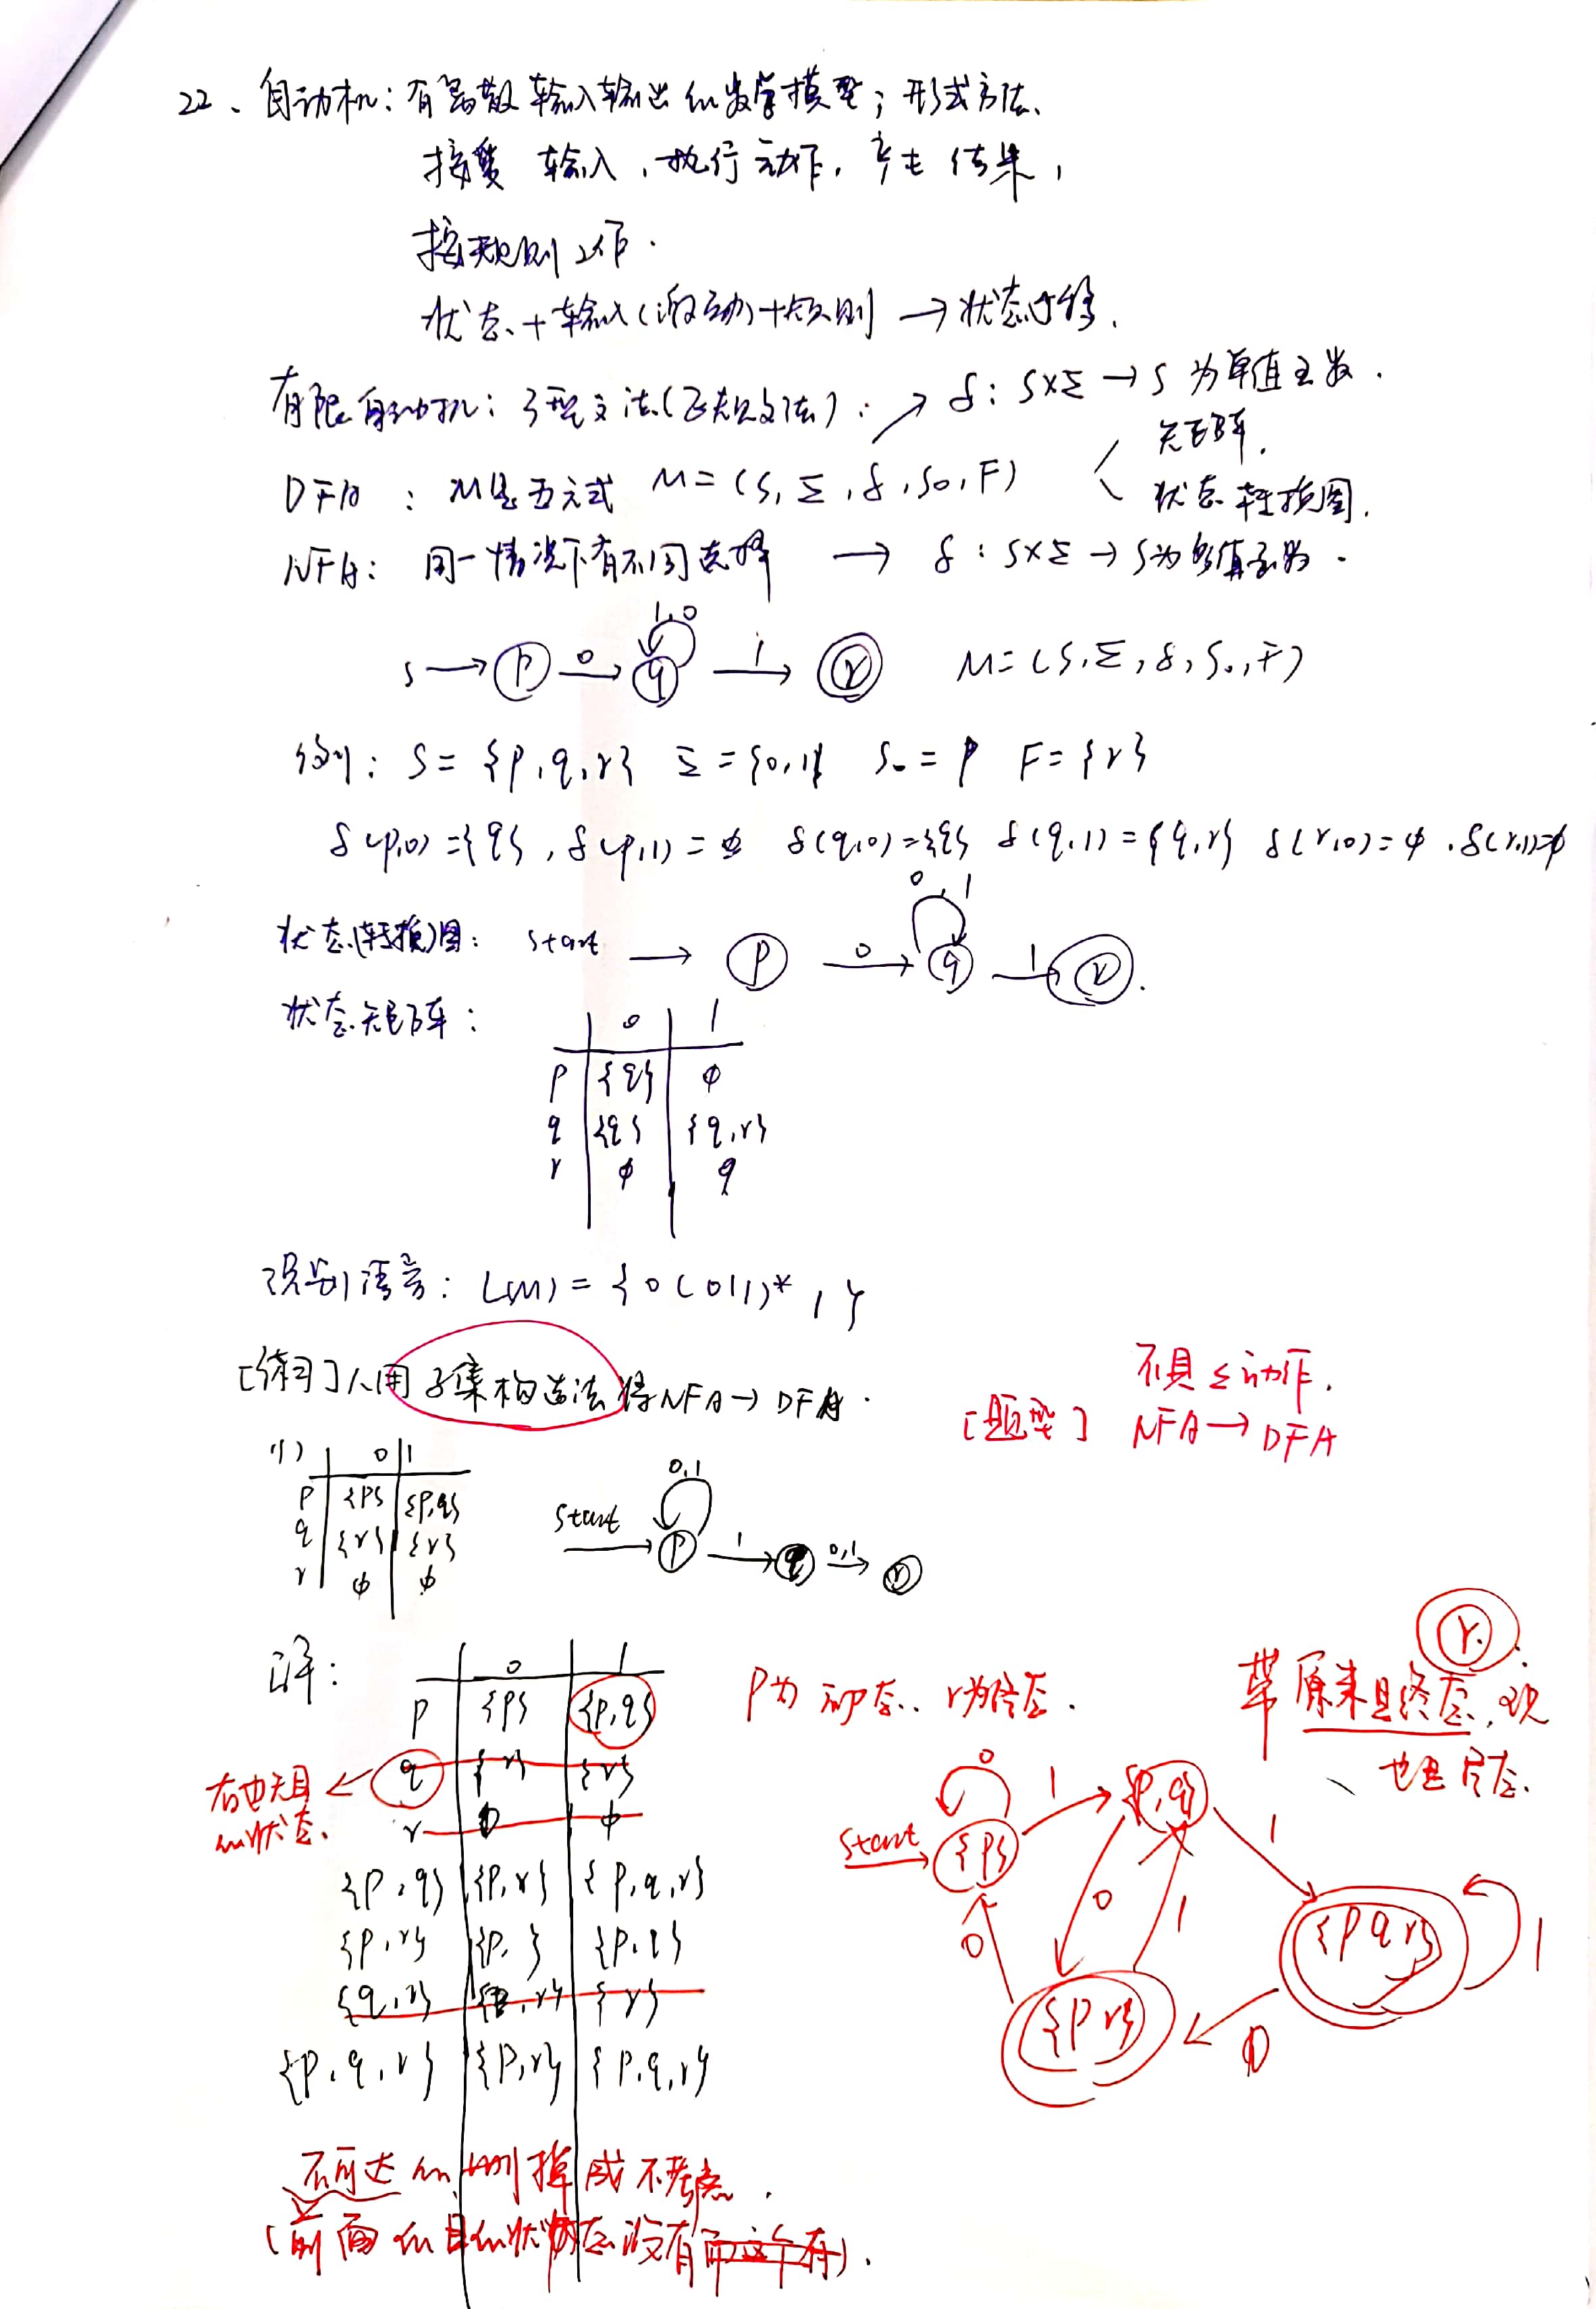 22、自动机：有离散输入输出的数学模型；形式方法、
接受 输入，执行动作，产生结果，
按规则工作.
状态+输入(激励)+规则 → 状态迁移.
有限自动机：3型文法(正规文法)： → δ：S×Σ → S 为单值函数.
DFA ： M是五元式 M=(S, Σ, δ, S0, F) < 矩阵. 状态转换图.
NFA： 同一情况下有不同选择 → δ：S×Σ → S为多值函数.
1,0
s → p 0 → q 1 → r M=(S, Σ, δ, S0, F)
例：S={p,q,r} Σ={0,1} S0=p F={r}
δ(p,0)={q}, δ(p,1)=φ δ(q,0)={q} δ(q,1)={q,r} δ(r,0)=φ. δ(r,1)=φ
0,1
状态(转换)图： start → p 0 → q 1 → r.
状态矩阵：
0 1
p {q} φ
q {q} {q,r}
r φ φ
识别语言：L(M)={0(0|1)*1}
[练习]1.用子集构造法将NFA→DFA.
不具ε动作.
[题型] NFA→DFA
(1) 0 1
p {p} {p,q}
q {r} {r}
r φ φ
start p 0,1 1 q 0,1 r
解：
0 1
p {p} {p,q}
q {r} {r}
r φ φ
{p,q} {p,r} {p,q,r}
{p,r} {p, } {p,q}
{q,r} {r} {r}
{p,q,r} {p,r} {p,q,r}
p为初态.. r为终态.
r.
原来是终态,现
也是终态.
右也无目
的状态.
start {p} 0 1 {p,q} 1 0 1 0 {p r} {p q r} 1 0
不可达的删掉或不考虑.
(前面的目的状态没有而这个有).